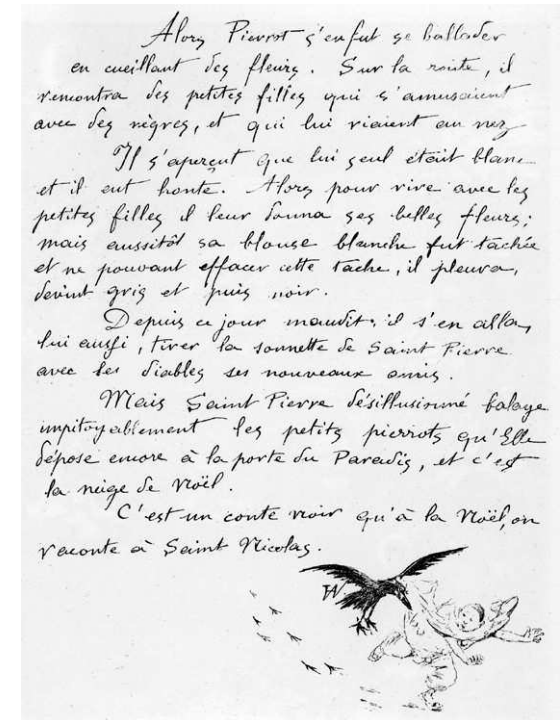 Alors Pierrot s'en fut se ballader
en cueillant des fleurs. Sur la route, il
rencontra des petites filles qui s'amusaient
avec des nègres, et qui lui riaient au nez
Il s'aperçut que lui seul était blanc
et il eut honte. Alors pour rire avec les
petites filles il leur donna ses belles fleurs;
mais aussitôt sa blouse blanche fut tachée
et ne pouvant effacer cette tache, il pleura,
devint gris et puis noir.
Depuis ce jour maudit, il s'en alla,
lui aussi, tirer la sonnette de Saint Pierre
avec les diables ses nouveaux amis.
Mais Saint Pierre désillusionné balaye
impitoyablement les petits pierrots qu'Elle
dépose encore à la porte du Paradis, et c'est
la neige de Noël.
C'est un conte noir qu'à la Noël, on
raconte à Saint Nicolas.